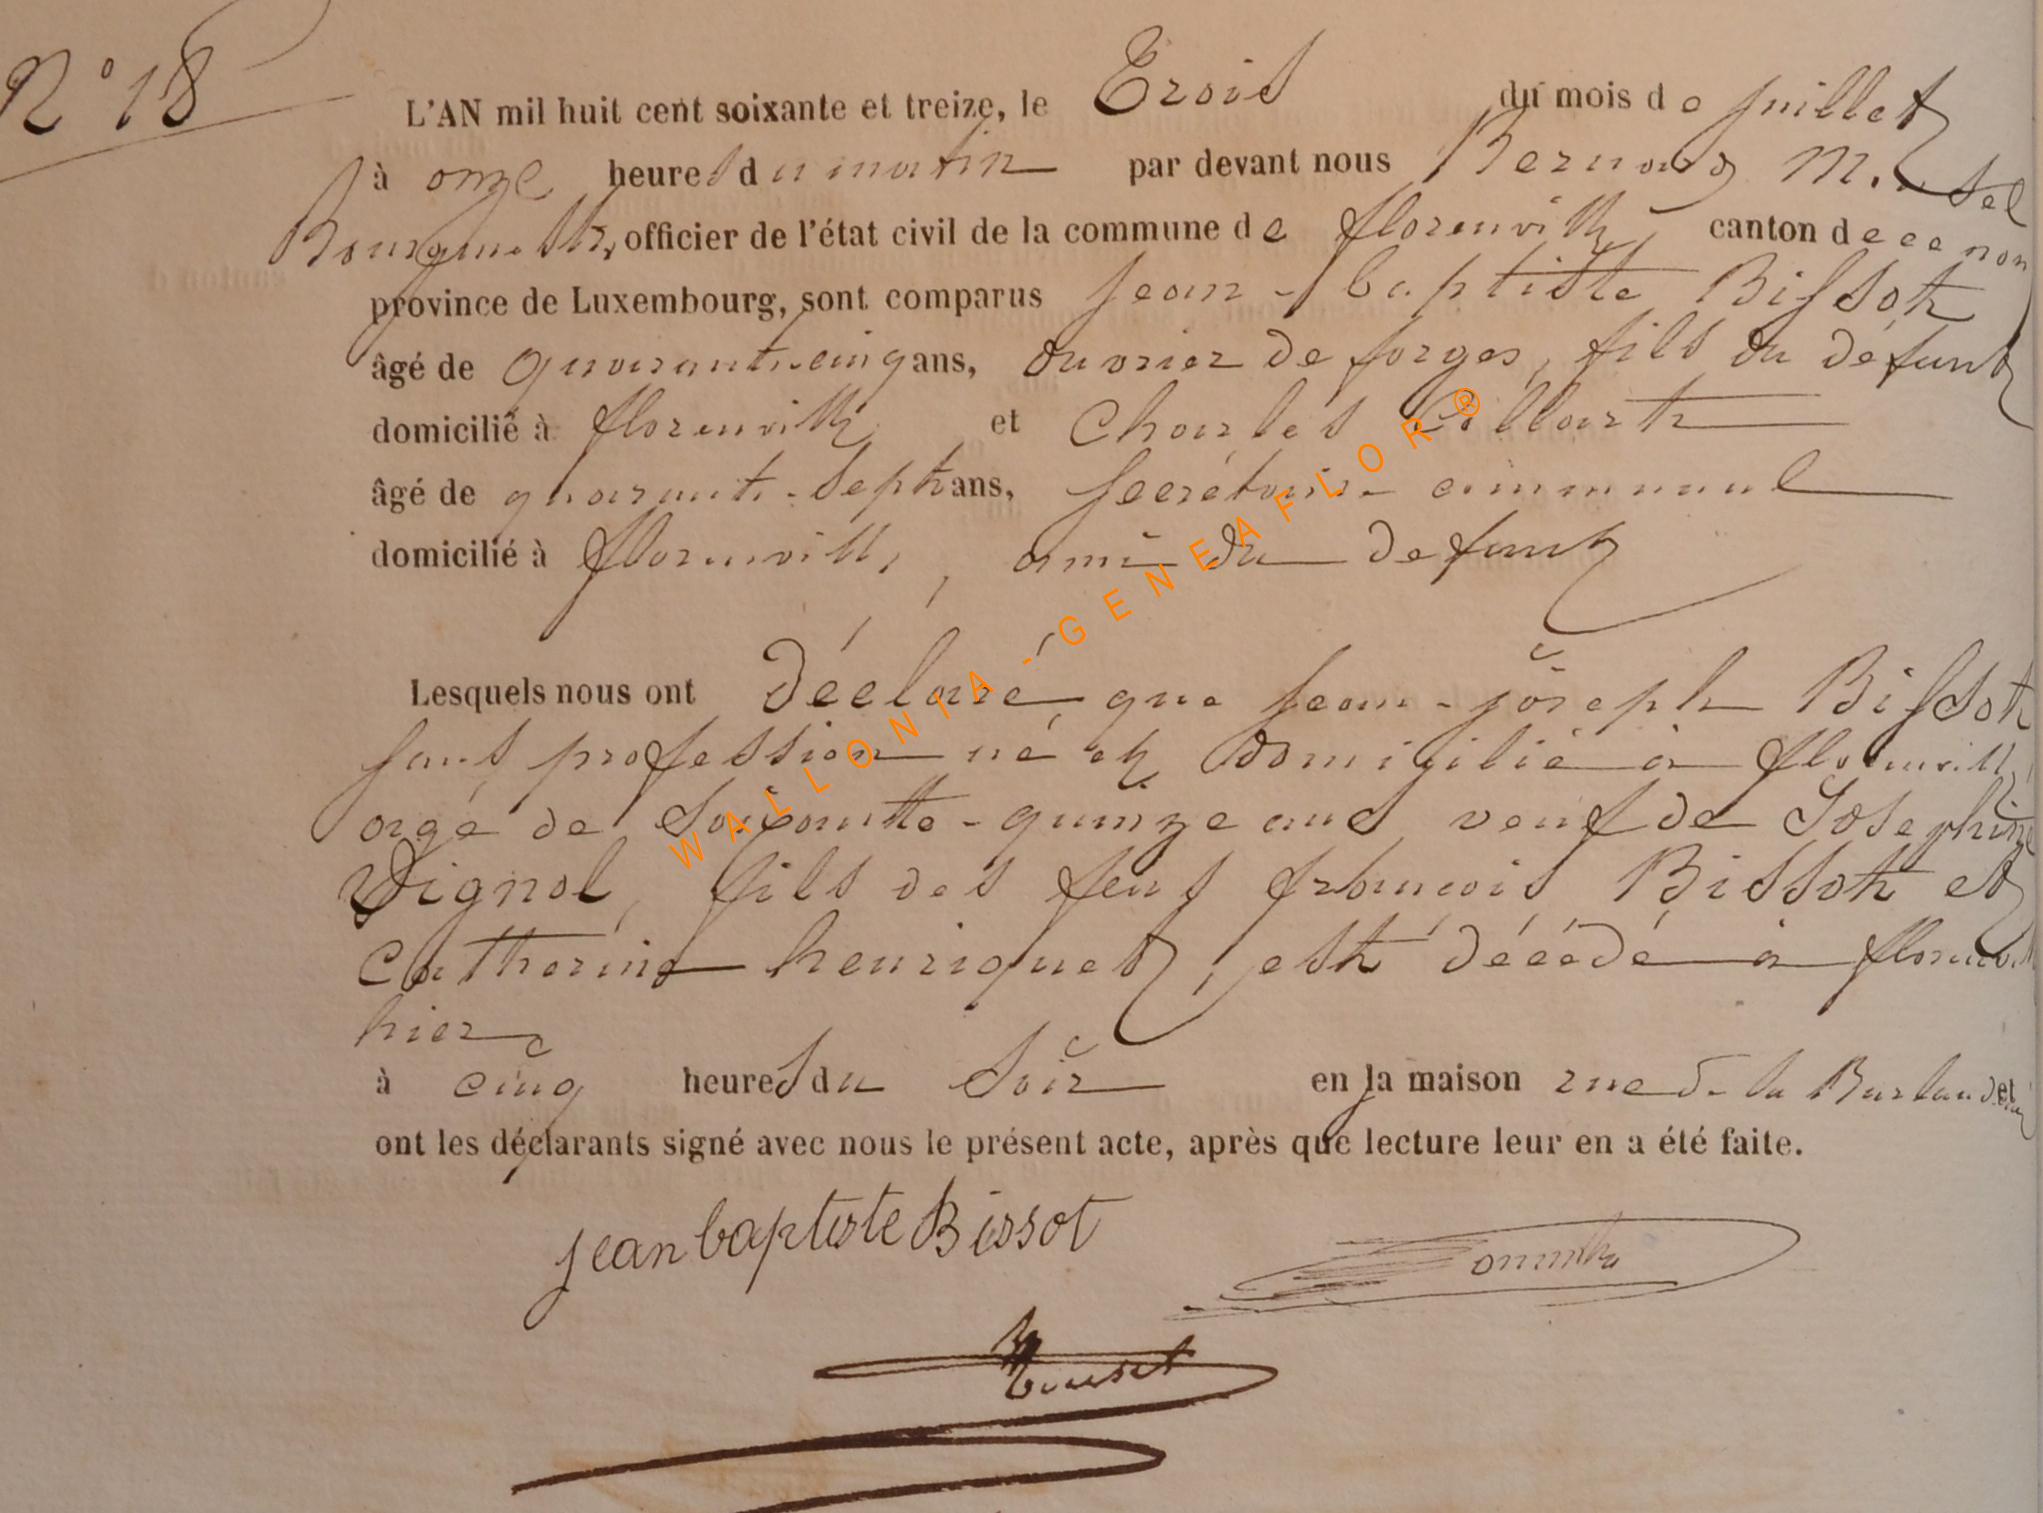 N° 18
L'AN mil huit cent soixante et treize, le Trois du mois de juillet
à onze heures du matin par devant nous Bernard
Bourgmestre, officier de l'état civil de la commune de florenville, canton de ce nom
province de Luxembourg, sont comparus jean-baptiste Bissot
âgé de quarante-cinq ans, ouvrier de forges, fils du défunt
domicilié à florenville et Charles
âgé de quarante-sept ans, secrétaire communal
domicilié à florenville, ami du defunt
Lesquels nous ont déclaré que jean-joseph Bissot
sans profession né et domicilié à florenville
agé de soixante-quinze ans veuf de Josephine
Dignol, fils des feus francois Bissot et
Catherine henriquet, est décédé à florenville
hier
à cinq heures du soir en sa maison rue de la et
ont les déclarants signé avec nous le présent acte, après que lecture leur en a été faite.
jean baptiste Bissot
WALLONIA-GENEAFLOR®